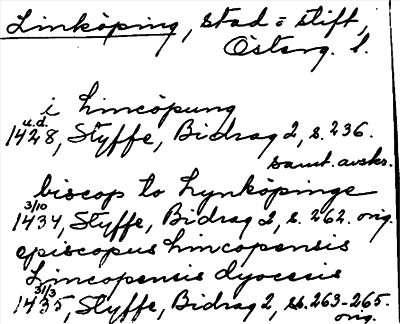 Linköping, stad = stift,
Österg. l.
i Lincöpung
u.d.
1428, Styffe, Bidrag 2, s. 236.
samt. avskr.
biscop to Lynköpinge
3/10
1434, Styffe, Bidrag 2, s. 262. orig.
episcopus Lincopensis
Lincopensis dyocesis
31/3
1435, Styffe, Bidrag 2, ss. 263-265.
orig.